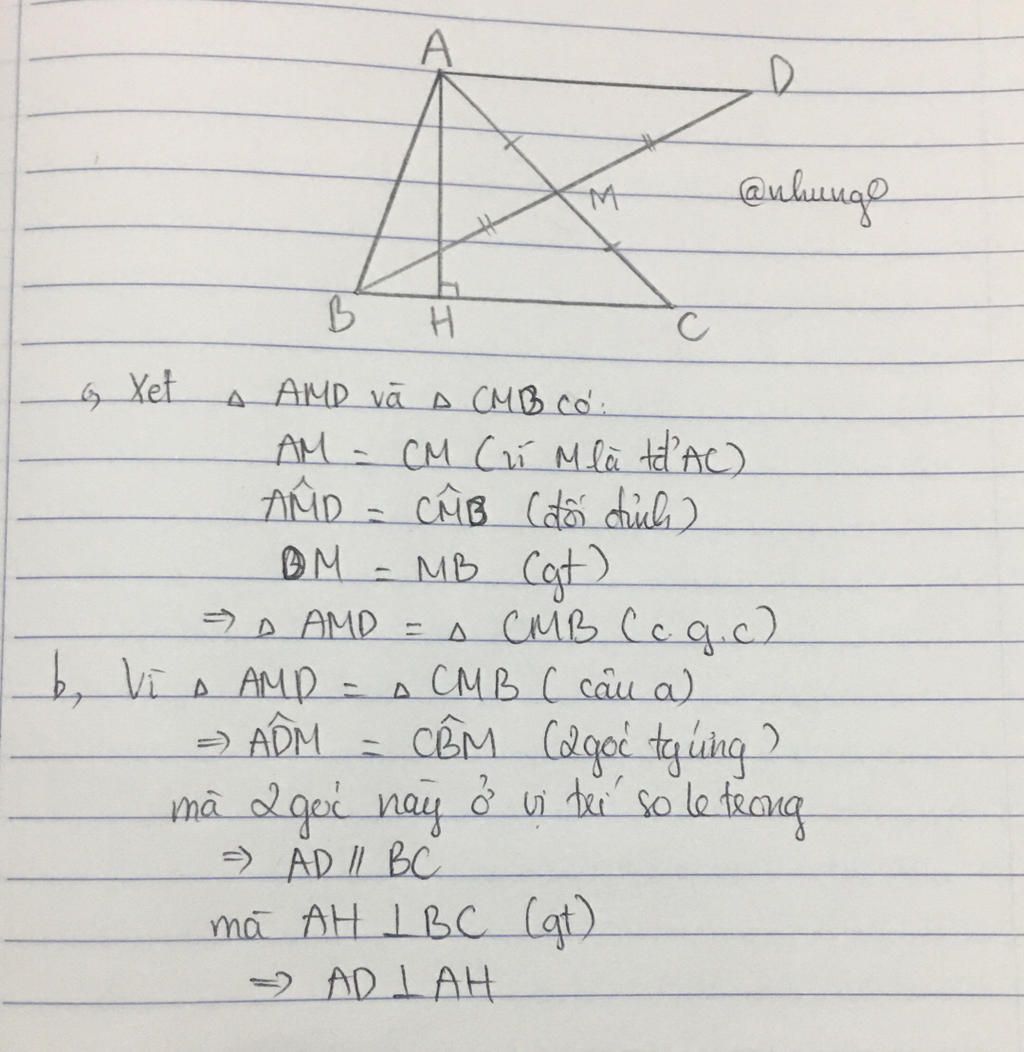 A
D
M
@nhungo
B
H
C
a, Xét △ AMD và △ CMB có:
AM = CM (vì M là tđ' AC)
AM̂D = CM̂B (đối đỉnh)
DM = MB (gt)
⇒ △ AMD = △ CMB (c.g.c)
b, Vì △ AMD = △ CMB (câu a)
⇒ AD̂M = CB̂M (2 góc tg ứng)
mà 2 góc này ở vị trí so le trong
⇒ AD // BC
mà AH ⊥ BC (gt)
⇒ AD ⊥ AH